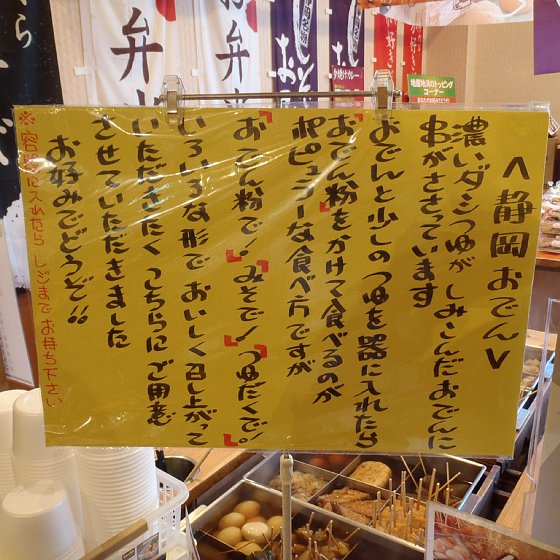 <静岡おでん>
濃いダシつゆがしみこんだおでんに
串がささっています
おでんと少しのつゆを器に入れたら
「おでん粉」をかけて食べるのが
ポピュラーな食べ方ですが
「おでん粉で!」「みそで!」「つゆだくで!」
いろいろな形でおいしく召し上がって
いただきたくこちらにご用意
させていただきました
お好みでどうぞ!!
※容器に入れたらレジまでお持ち下さい
お弁
お弁
地産地消のトッピング
コーナー